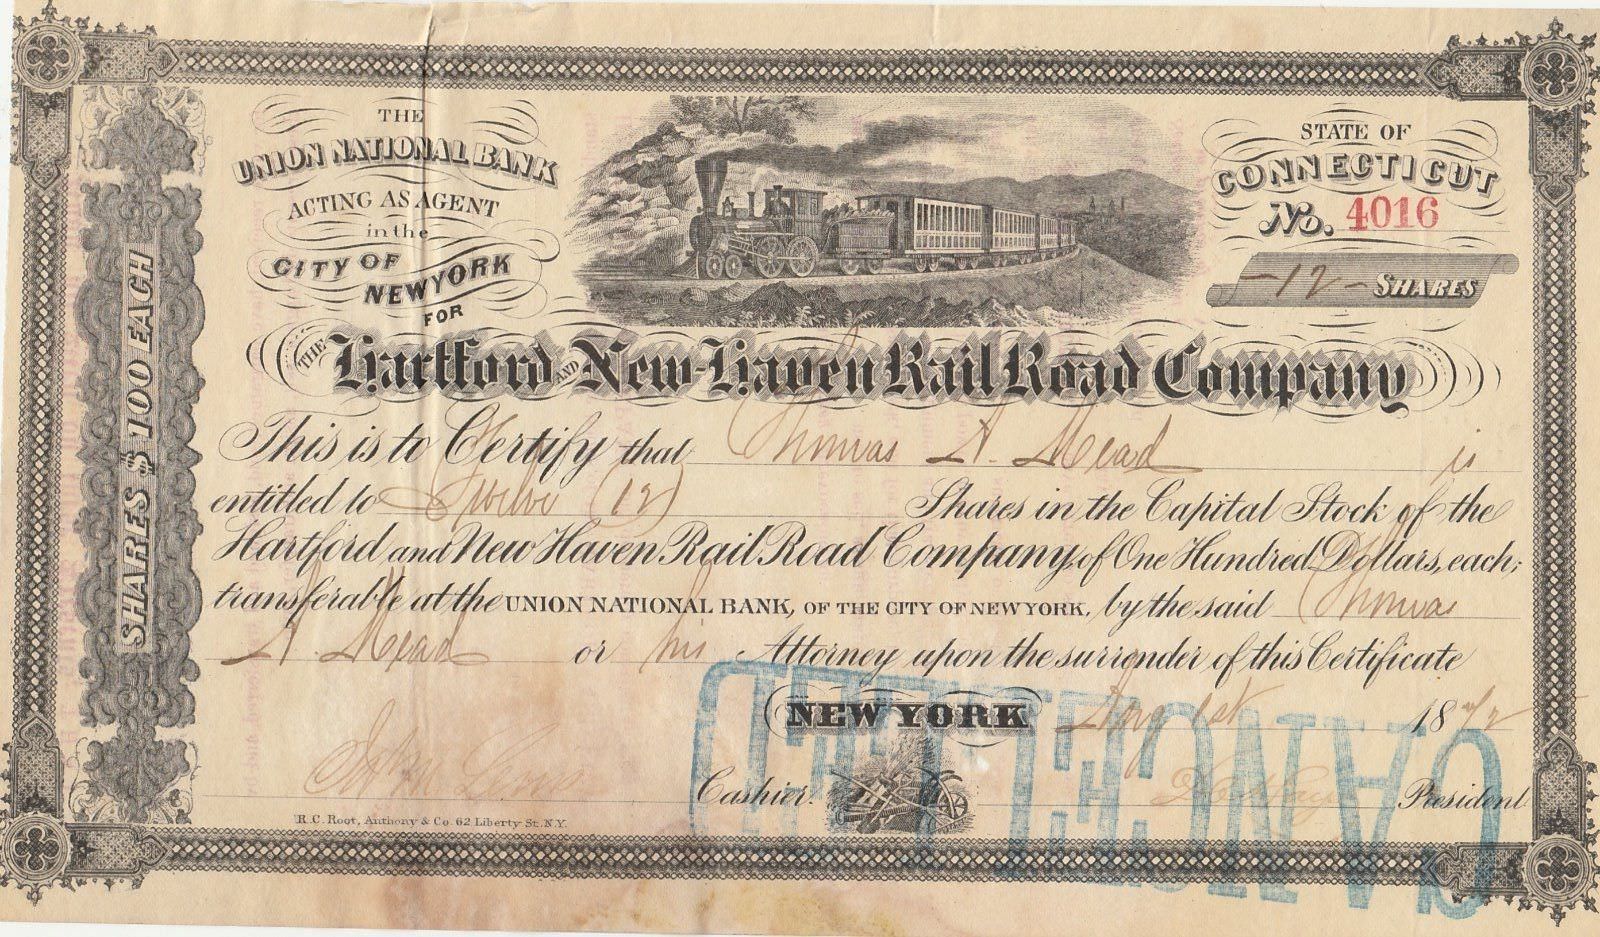 THE
UNION NATIONAL BANK
ACTING AS AGENT
in the
CITY OF
NEW YORK
FOR
STATE OF
CONNECTICUT
No. 4016
-12- SHARES
SHARES $100 EACH
THE Hartford AND New-Haven Rail Road Company
This is to Certify that Thomas A. Mead is
entitled to Twelve (12) Shares in the Capital Stock of the
Hartford and New Haven Rail Road Company, of One Hundred Dollars, each;
transferable at the UNION NATIONAL BANK, OF THE CITY OF NEW YORK, by the said Thomas
A. Mead or his Attorney upon the surrender of this Certificate
NEW YORK Aug 1st 1872
Cashier. President
R.C. Root, Anthony & Co. 62 Liberty St. N.Y.
CANCELLED